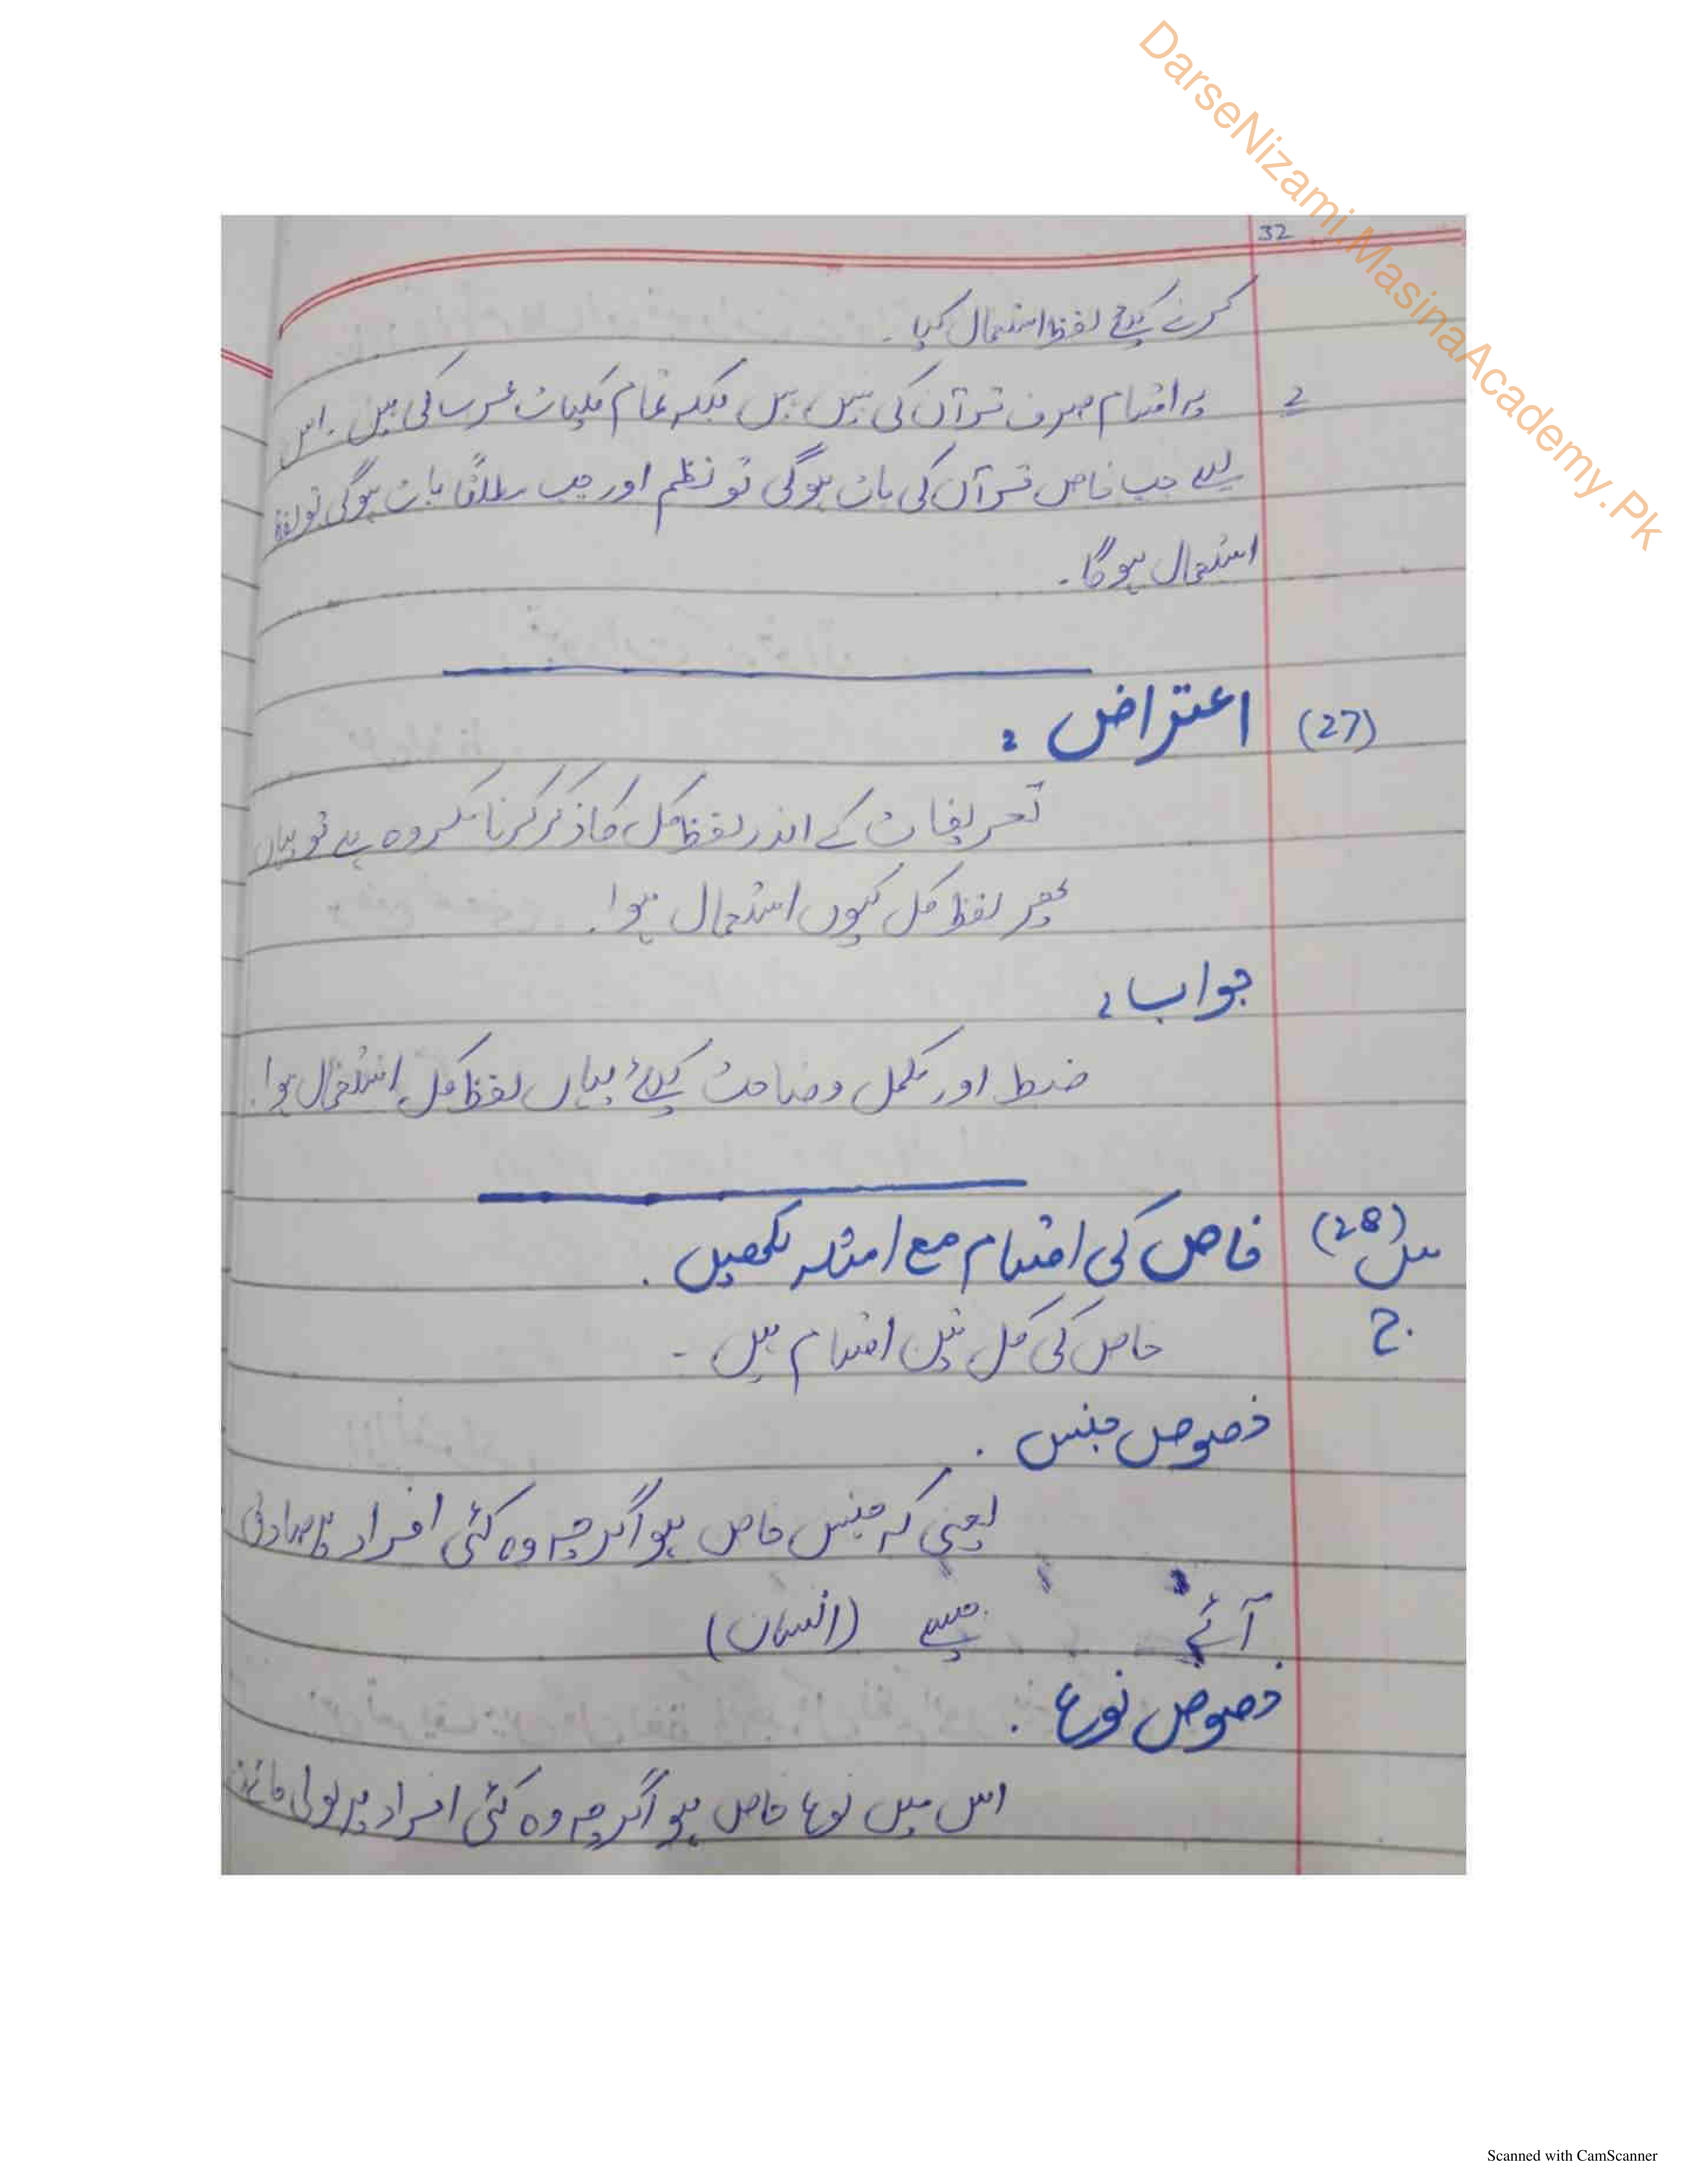 DarseNizami.MasinaAcademy.Pk
32
کرنے کیلئے لفظ استعمال کیا۔
2 یہ اقسام صرف قرآن کی نہیں ہیں بلکہ تمام کلمات عرب کی ہیں۔ اس
لیے جب خاص قرآن کی بات ہوگی تو نظم اور جب مطلقاً بات ہوگی تو لفظ
استعمال ہوگا۔
(27) اعتراض :
تعریفات کے اندر لفظ کل کا ذکر کرنا مکروہ ہے تو یہاں
پھر لفظ کل کیوں استعمال ہوا۔
جواب :
ضبط اور مکمل وضاحت کیلئے یہاں لفظ کل استعمال ہوا۔
س (28) خاص کی اقسام مع امثلہ لکھیں۔
ج۔ خاص کی کل تین اقسام ہیں۔
خصوص جنس۔
یعنی کہ جنس خاص ہو اگرچہ وہ کئی افراد پر صادق
آئے جیسے (انسان)
خصوص نوع۔
اس میں نوع خاص ہو اگرچہ وہ کئی افراد پر بولی جائے
Scanned with CamScanner